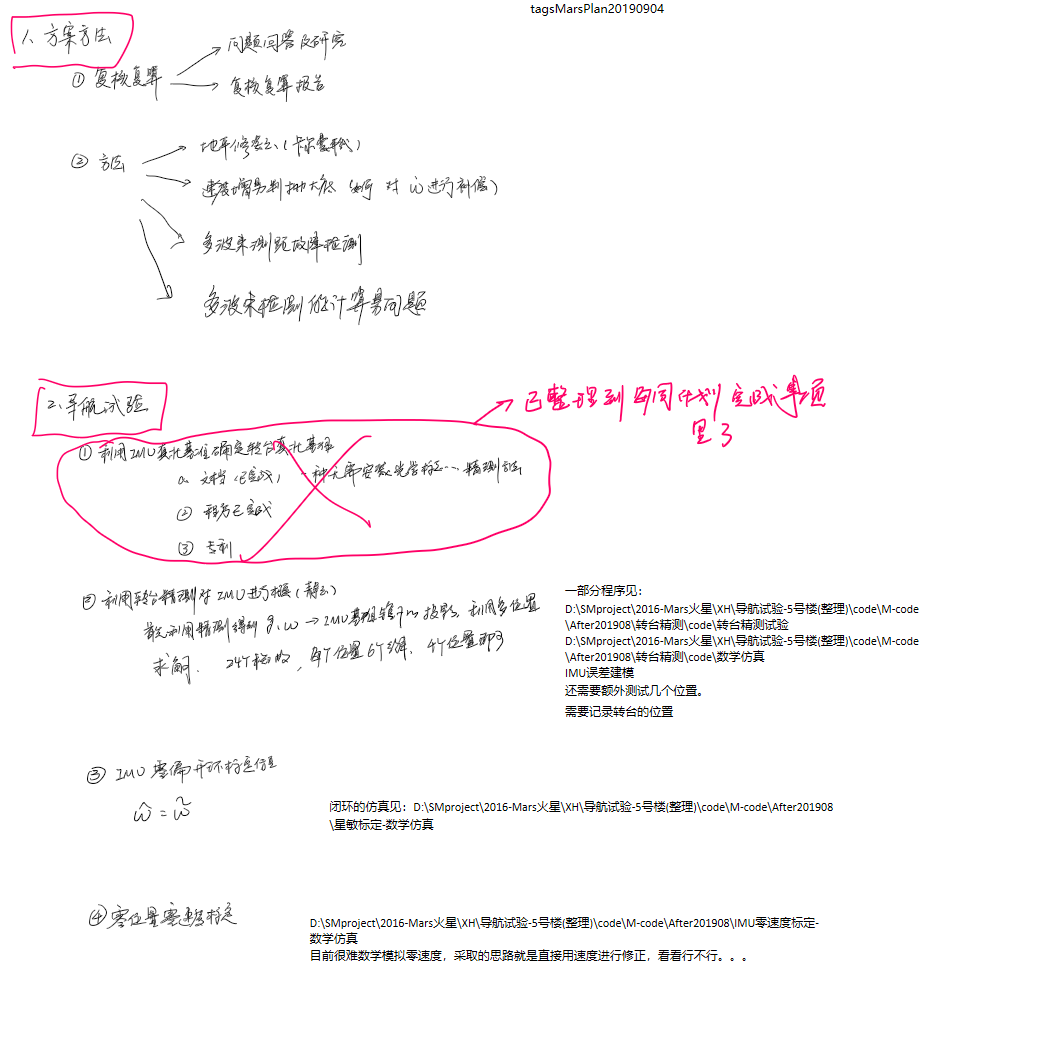 tagsMarsPlan20190904
1、方案方法
① 复核复算
问题回答及研究
复核复算报告
② 方法
地平修安(卡尔曼替代)
速度增易判 大底(如何对 ŵ 进行补偿)
多波束测距故障检测
多波束检测的计算易问题
2.导航试验
已整理到 同计划完成事项
里了
① 利用IMU真北基准确定转台真北基准
a. 文档(已完成) 一种 光学 … 精测方法
② 程序已完成
③ 专利
② 利用转台精测对IMU进行标定(静态)
首先利用精测得到 g、ω → IMU 投影,利用多位置
求解. 24个 , 每个位置6个 , 4个位置即可
一部分程序见:
D:\SMproject\2016-Mars火星\XH\导航试验-5号楼(整理)\code\M-code
\After201908\转台精测\code\转台精测试验
D:\SMproject\2016-Mars火星\XH\导航试验-5号楼(整理)\code\M-code
\After201908\转台精测\code\数学仿真
IMU误差建模
还需要额外测试几个位置。
需要记录转台的位置
③ IMU 零偏开环标定仿真
ŵ = w̃
闭环的仿真见:D:\SMproject\2016-Mars火星\XH\导航试验-5号楼(整理)\code\M-code\After201908
\星敏标定-数学仿真
④ 零位置零速度标定
D:\SMproject\2016-Mars火星\XH\导航试验-5号楼(整理)\code\M-code\After201908\IMU零速度标定-
数学仿真
目前很难数学模拟零速度,采取的思路就是直接用速度进行修正,看看行不行。。。